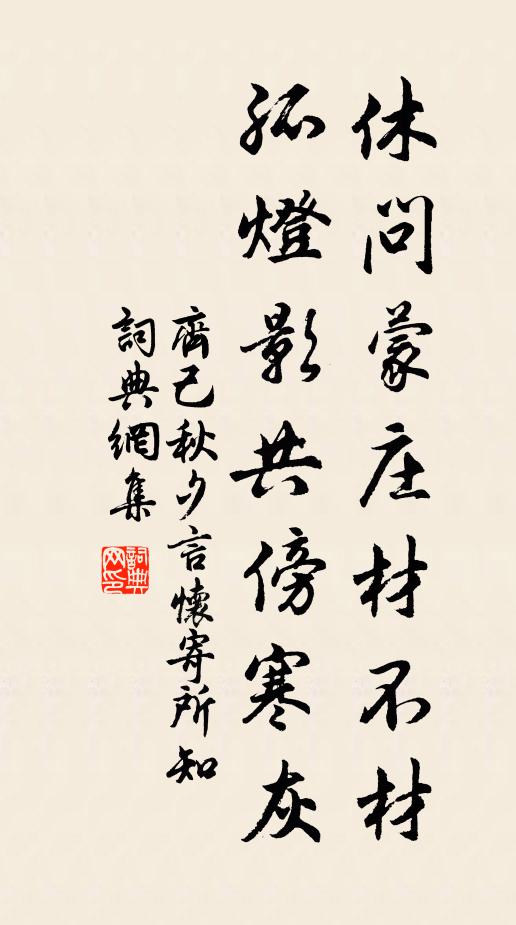 休問蒙庄材不材
孤燈影共傍寒灰
齊己秋夕言懷寄所知
詞典網集
詞典网印